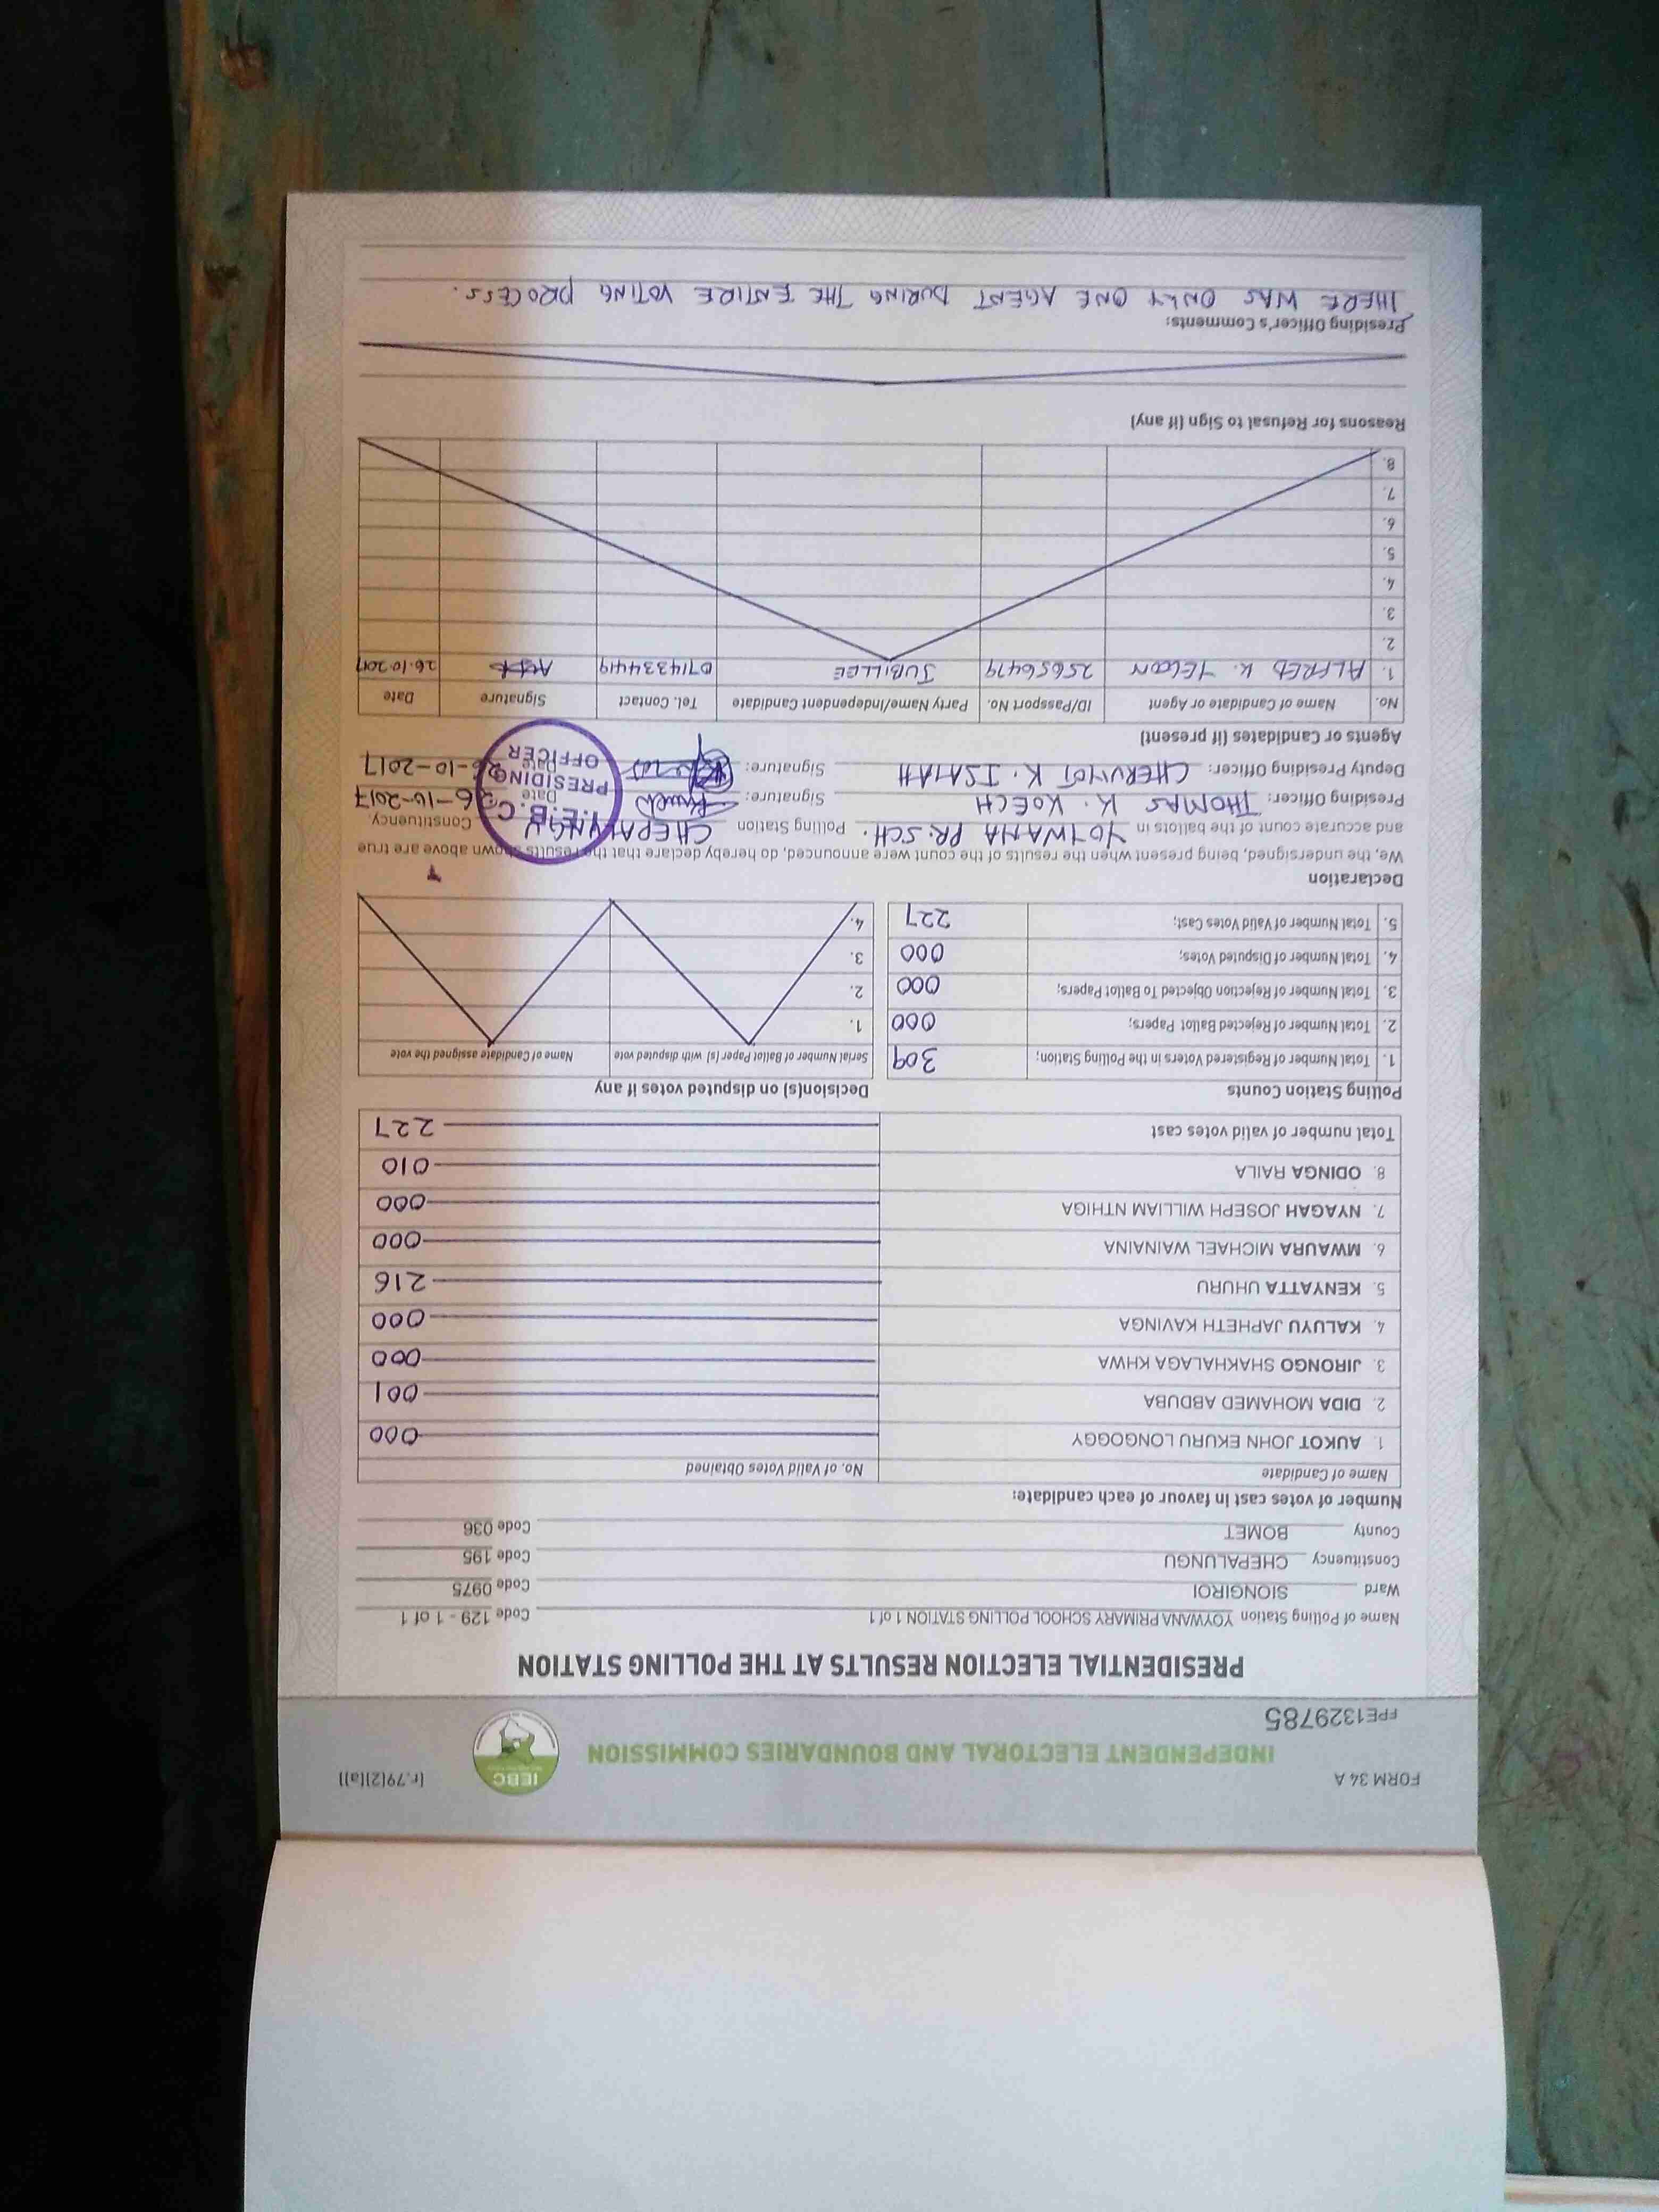 FORM 34 A
(r.79(2)(a))
IEBC
INDEPENDENT ELECTORAL AND BOUNDARIES COMMISSION
FPE1329785
PRESIDENTIAL ELECTION RESULTS AT THE POLLING STATION
Name of Polling Station YOYWANA PRIMARY SCHOOL POLLING STATION 1 of 1 Code 129 - 1 of 1
Ward SIONGIROI Code 0975
Constituency CHEPALUNGU Code 195
County BOMET Code 036
Number of votes cast in favour of each candidate:
Name of Candidate No. of Valid Votes Obtained
1. AUKOT JOHN EKURU LONGOGGY 000
2. DIDA MOHAMED ABDUBA 001
3. JIRONGO SHAKHALAGA KHWA 000
4. KALUYU JAPHETH KAVINGA 000
5. KENYATTA UHURU 216
6. MWAURA MICHAEL WAINAINA 000
7. NYAGAH JOSEPH WILLIAM NTHIGA 000
8. ODINGA RAILA 010
Total number of valid votes cast 227
Polling Station Counts
1. Total Number of Registered Voters in the Polling Station; 309
2. Total Number of Rejected Ballot Papers; 000
3. Total Number of Rejection Objected To Ballot Papers; 000
4. Total Number of Disputed Votes; 000
5. Total Number of Valid Votes Cast; 227
Decision(s) on disputed votes if any
Serial Number of Ballot Paper (s) with disputed vote Name of Candidate assigned the vote
1.
2.
3.
4.
Declaration
We, the undersigned, being present when the results of the count were announced, do hereby declare that the results shown above are true
and accurate count of the ballots in YOYWANA PR. SCH. Polling Station CHEPALUNGU Constituency.
Presiding Officer: THOMAS K. KOECH Signature: Date 26-10-2017
Deputy Presiding Officer: CHERUIYOT K. ISAIAH Signature: Date 26-10-2017
I.E.B.C
PRESIDING
OFFICER
Agents or Candidates (if present)
No. Name of Candidate or Agent ID/Passport No. Party Name/Independent Candidate Tel. Contact Signature Date
1. ALFRED K. YEGON 25656479 JUBILLEE 0714334419 26.10.2017
2.
3.
4.
5.
6.
7.
8.
Reasons for Refusal to Sign (if any)
Presiding Officer's Comments:
THERE WAS ONLY ONE AGENT DURING THE ENTIRE VOTING PROCESS.